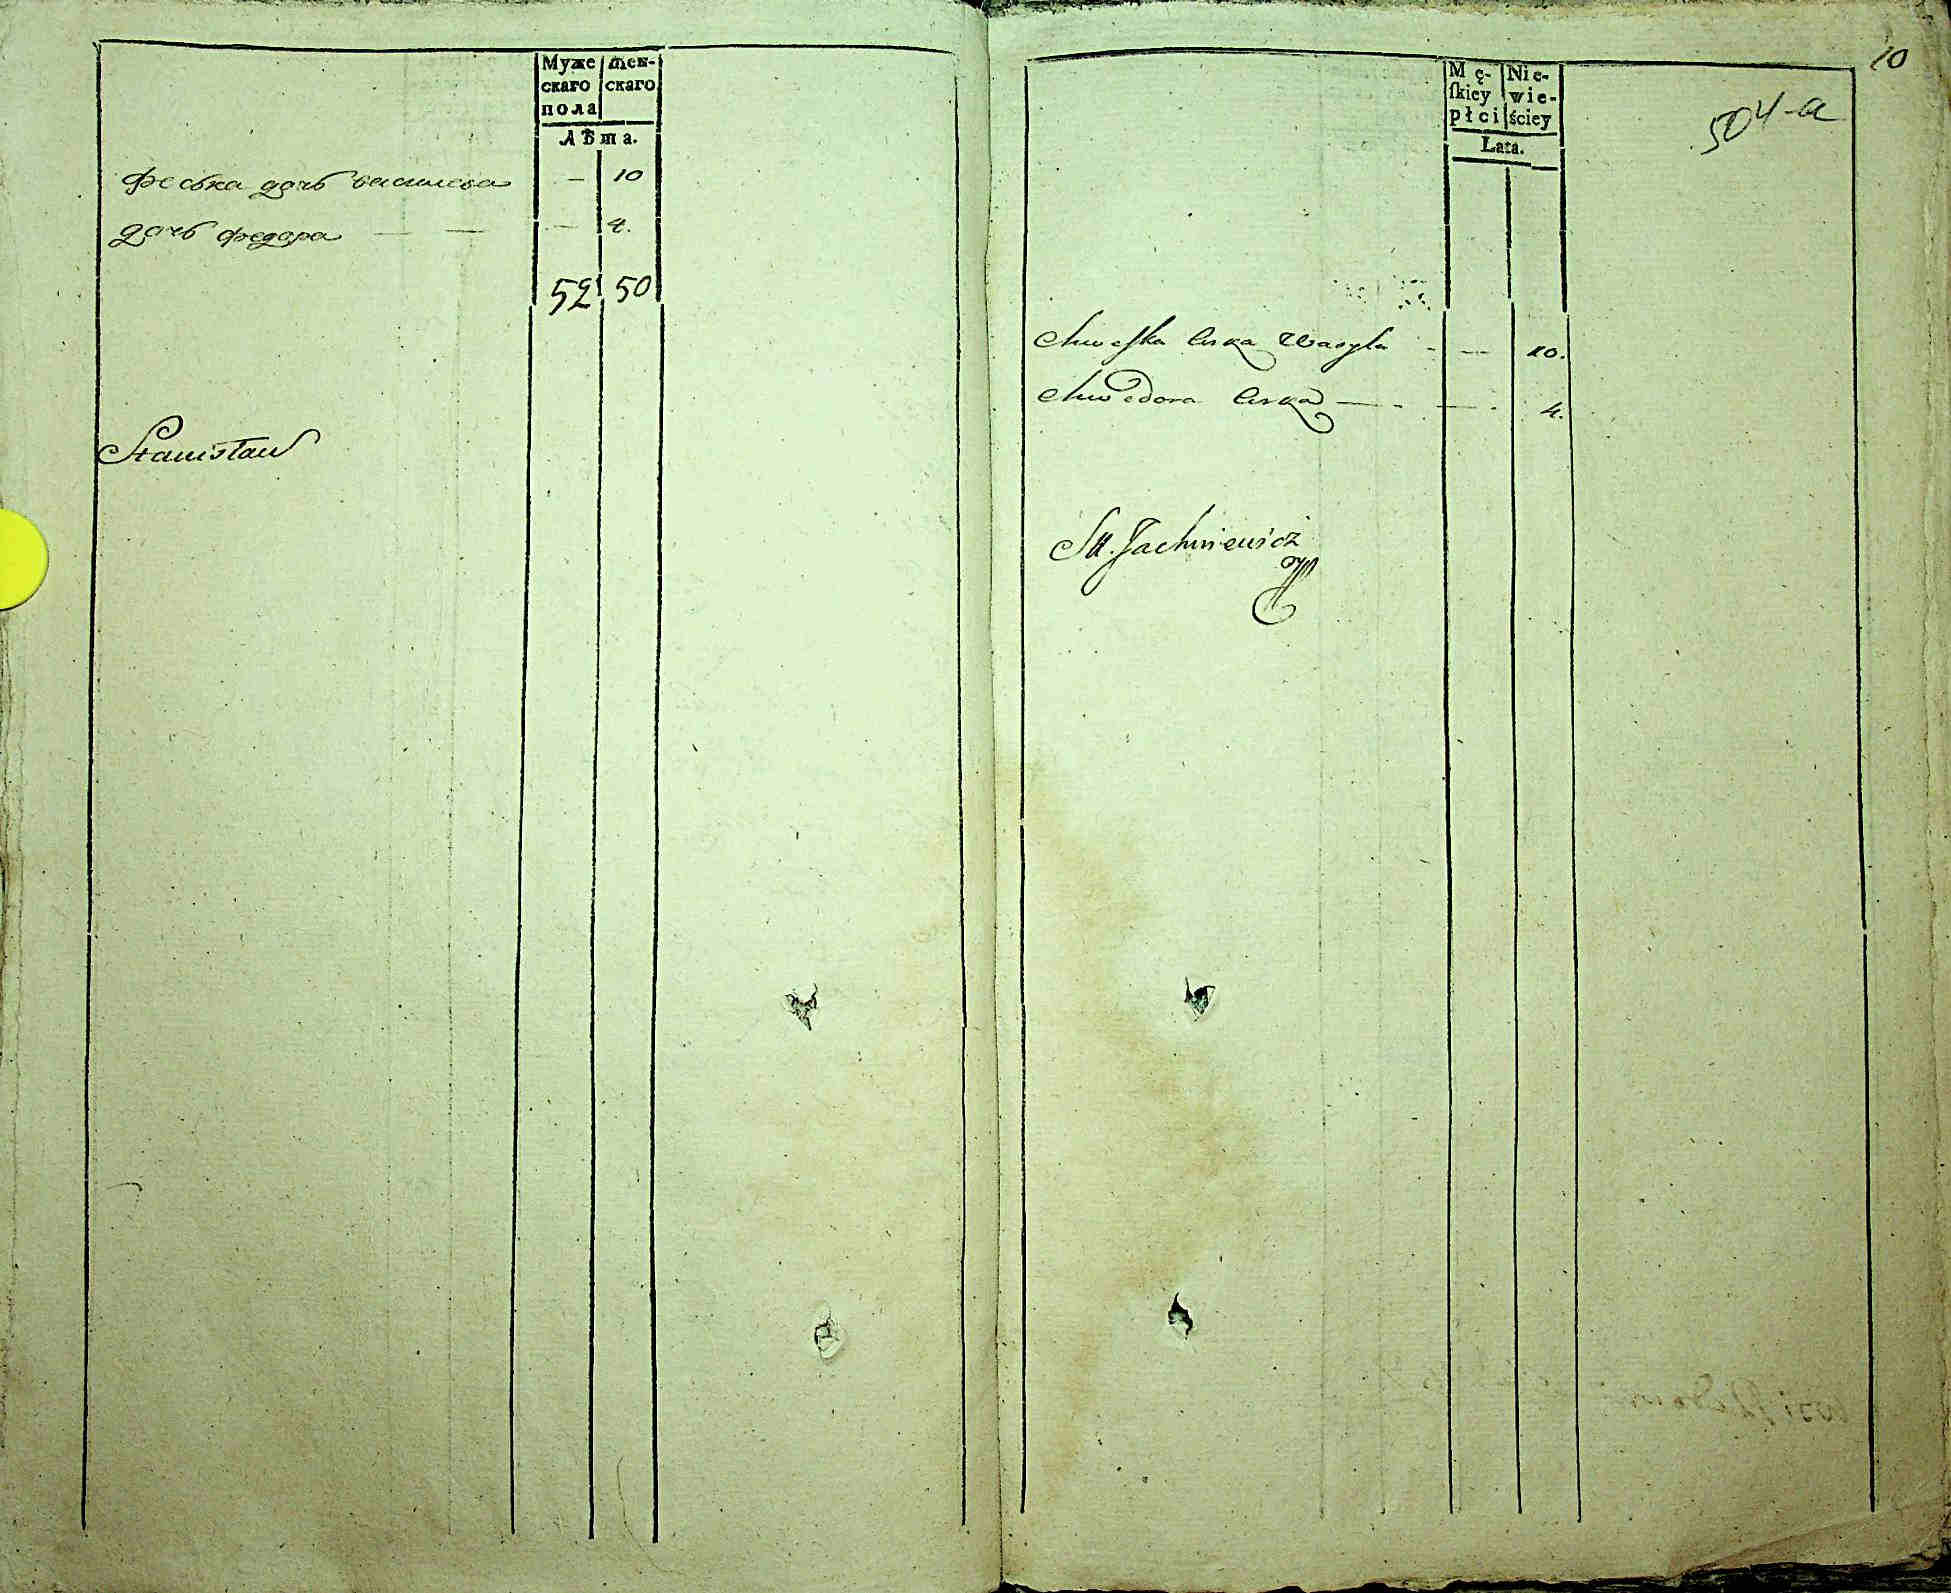 Муже
скаго
пола
жен-
скаго
Лѣта.
феська дочь василева — 10
дочь федора — — — 4.
52 50
Stanisław
10
504-a
Mę-
ſkiey
płci
Nie-
wie-
ściey
Lata.
Chweſka Curka Wasyla - — 10.
Chwedora Curka — — 4.
St. Jachniewicz